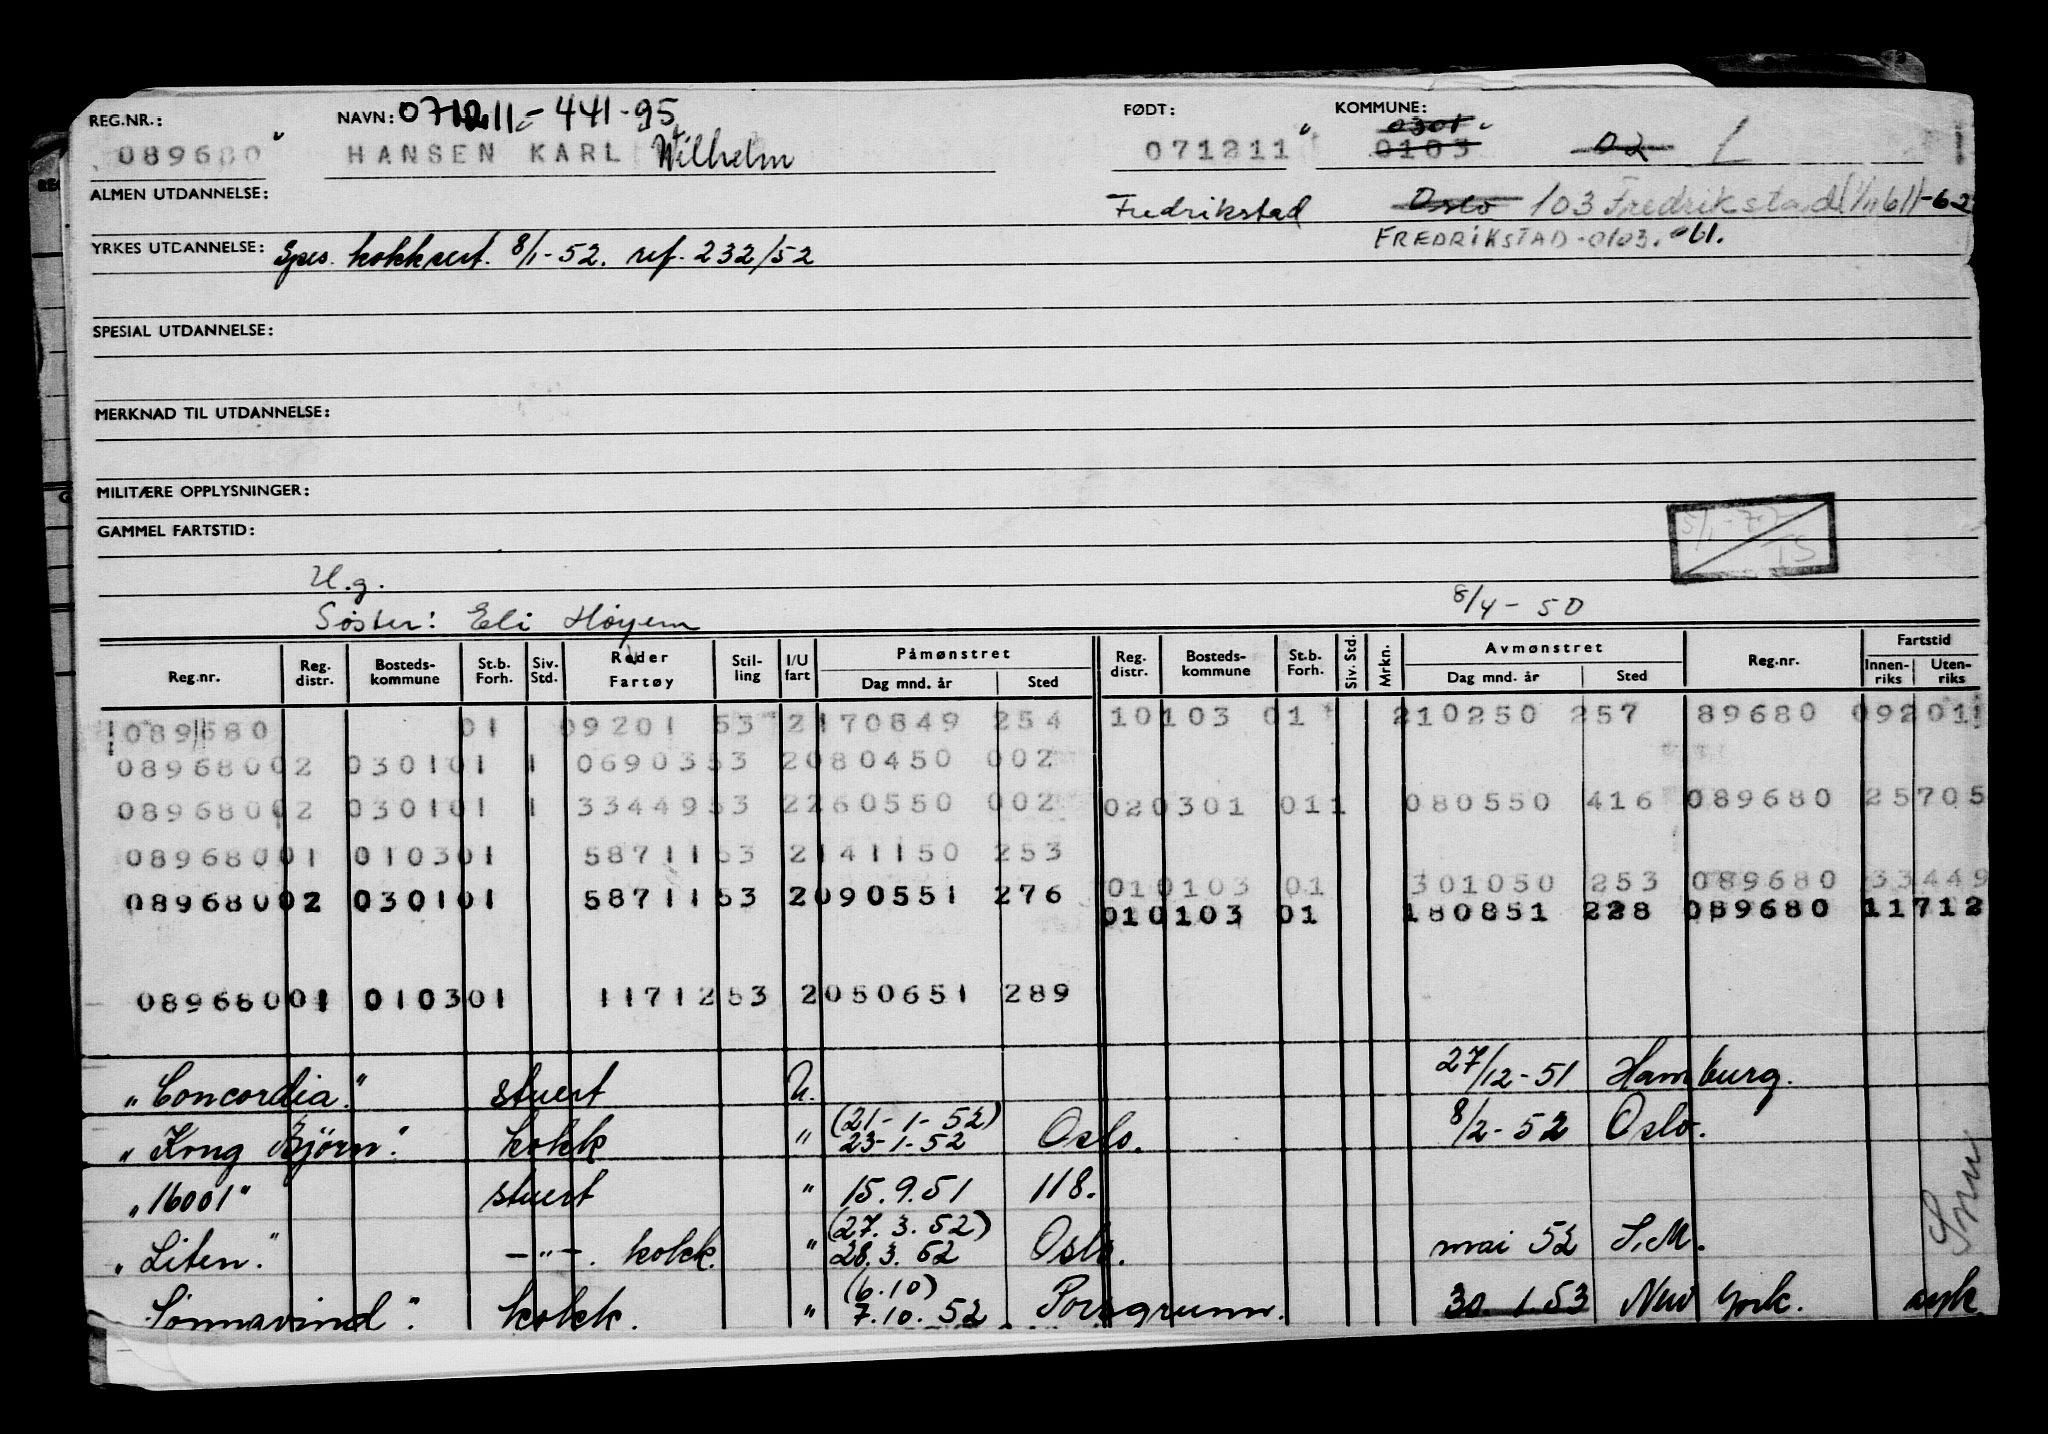 REG.NR.: NAVN: 071211-441-95 FØDT: KOMMUNE: 0301
089680 HANSEN KARL Wilhelm 071211 0103 02
ALMEN UTDANNELSE: Fredrikstad Oslo 103 Fredrikstad
YRKES UTDANNELSE: Spes. kokksert. 8/1-52. ref. 232/52 FREDRIKSTAD-0103. 61.
SPESIAL UTDANNELSE:
MERKNAD TIL UTDANNELSE:
MILITÆRE OPPLYSNINGER:
GAMMEL FARTSTID:
U.g.
Søster: Eli Høyem 8/4-50
Reg.nr. Reg. distr. Bosteds-kommune St.b. Forh. Siv. Std. Reder Fartøy Stil-ling I/U fart Påmønstret Dag mnd. år Sted Reg. distr. Bosteds-kommune St.b. Forh. Siv. Std. Mrkn. Avmønstret Dag mnd. år Sted Reg.nr. Fartstid Innen-riks Uten-riks
089680 01 09201 53 2170849 254 10103 01 210250 257 89680 09201
08968002 030101 1 0690353 2080450 002
08968002 030101 1 3344953 2260550 002 020301 011 080550 416 089680 25705
08968001 010301 5871153 2141150 253
010103 01 301050 253 089680 33449
08968002 030101 5871153 2090551 276
010103 01 180851 228 089680 11712
08968001 010301 1171253 2050651 289
"Concordia." stuert U. 27/12-51 Hamburg.
(21-1-52)
"Kong Bjørn". kokk " 23-1-52 Oslo. 8/2-52 Oslo.
"16001" stuert " 15.9.51 118.
(27.3.52)
"Liten." -"-. kokk. " 28.3.52 Oslo. mai 52 S.M.
(6.10)
Sønnavind". kokk. " 7.10.52 Porsgrunn. 30.1.53 New York. syk